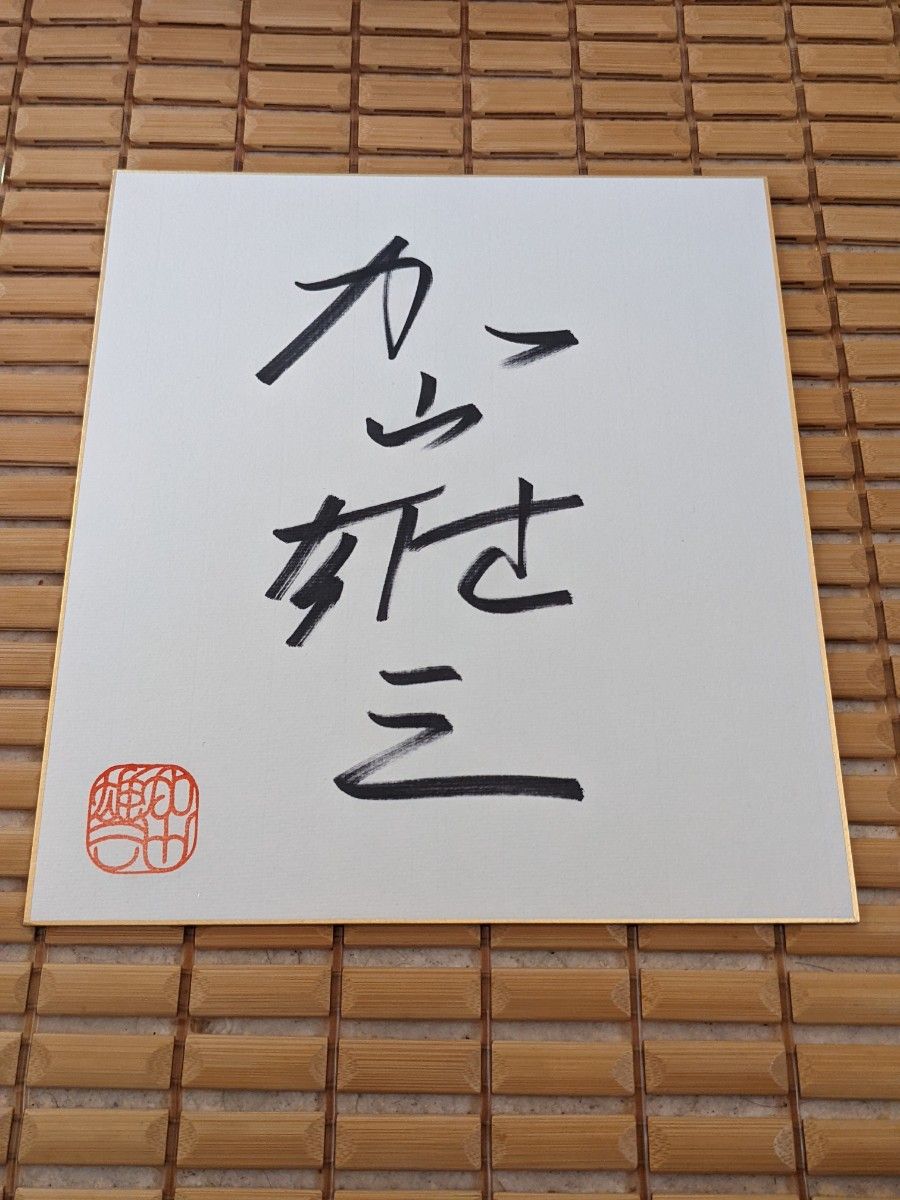 加山雄三
加山雄三